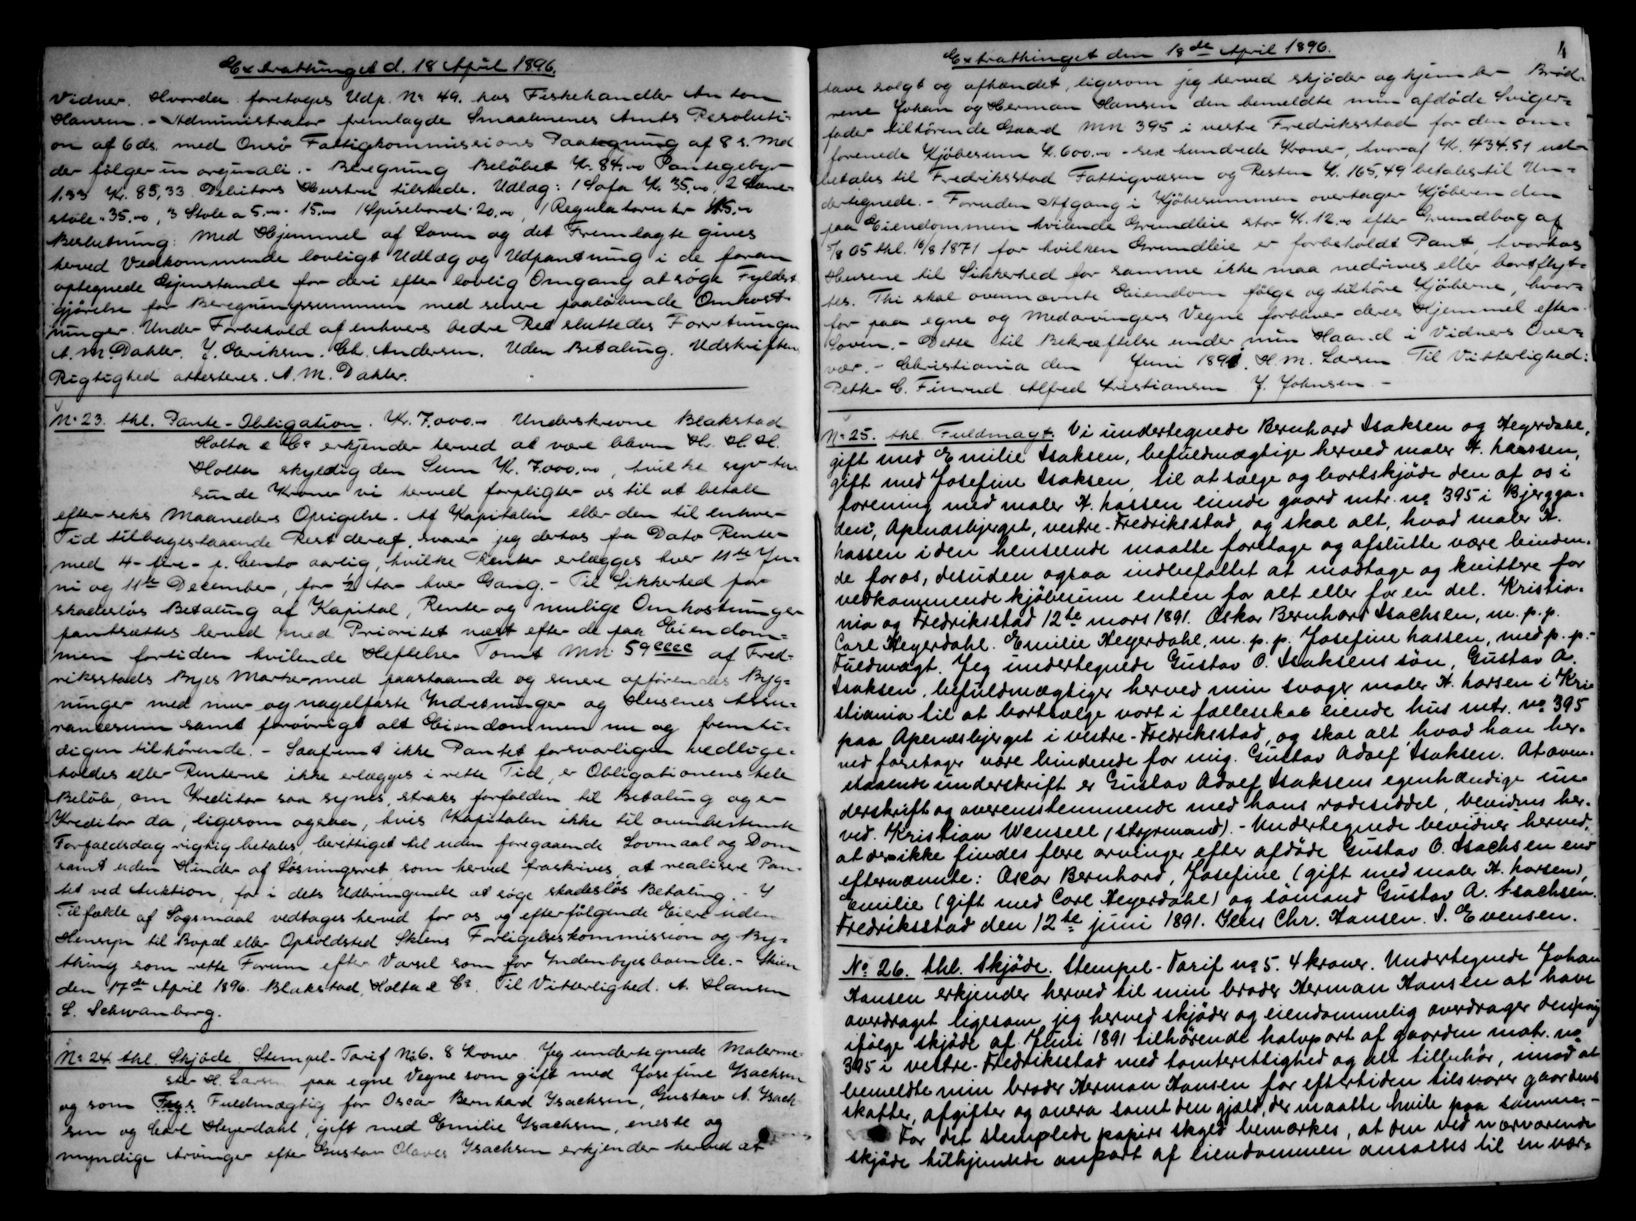 Extrathinget d. 18 April 1896.
Vidner. Hvorda foretoges Udp. No 49. hos Fiskehandler Anton
Hansen. - Administrator fremlagde Smaalenenes Amts Resoluti-
on af 6 ds. med Onsö Fattigkommissions Paategning af 8 s. Md
der følger in orginali. - Beregning Beløbet Kr. 84.00 Pantegebyr
1.33 Kr. 85,33 Debitors Hustru tilstede. Udlæg: 1 Sofa Kr. 35,00, 2 Læne-
stole - 35.00, 3 Stole a 5.00 - 15.00 1 Spisebord - 20.00, 1 Regulatoruhr 15.00
Beslutning: Med Hjemmel af Loven og det Fremlagte gives
herved Vedkommende lovligt Udlæg og Udpantning i de foran
optegnede Gjenstande for deri efter lovlig Omgang at søge Fyldest-
gjørelse for Beregningssummen med senere paaløbende Omkost-
ninger. Under Forbehold af enhvers bedre Ret sluttedes Forretningen
A. M. Dahler. J. Henriksen. Chl. Andersen. Uden Betaling. Udskriften
Rigtighed attesteres. A. M. Dahler.
No 23. thl. Pante-Obligation. Kr. 7.000.- Underskrevne Blakstad
Holta & Co erkjender herved at være bleven Hr. H. H.
Holta skyldig den Sum Kr. 7.000.00, hvilke syv tu
sinde Kroner vi herved forpligter os til at betale
efter seks Maaneders Opsigelse. Af Kapitalen eller den til enhver
Tid tilbagestaaende Rest deraf, svarer jeg dertos fra Dato Renter
med 4 - fire - p. Cento aarlig, hvilke Renter erlægges hver 11te Ju-
ni og 11te December, for ½ Aar hver Gang. - Til Sikkerhed for
skadesløs Betaling af Kapital, Renter og mulige Omkostninger
pantsættes herved med Prioritet næst efter de paa Eiendom-
men fortiden hvilende Heftelser Tomt Mn. 59 cccc af Fred-
riksstads Byes Marker med paastaaende og senere opførendes Byg-
ninger med mur og nagelfaste Indretninger og Husenes Assu-
rancesum samt forøvrigt alt Eiendommen nu og fremti-
digen tilhørende. - Saafremt ikke Pantet forsvarligen vedlige-
holdes eller Renterne ikke erlægges i rette Tid, er Obligationens hele
Beløb, om Kreditor saa synes, straks forfalden til Betaling og er
Kreditor da, ligesom ogsaa, hvis Kapitalen ikke til ovenbestemte
Forfaldsdag rigtig betales, berettiget til uden foregaaende Lovmaal og Dom
samt uden Hinder af Løsningsret som herved fraskrives, at realisere Pan-
tet ved Auktion, for i dets Udbringende at søge skadesløs Betaling. - I
Tilfælde af Søgsmaal vedtages herved for os og efterfølgende Eiere uden
Hensyn til Bopæl eller Opholdsted Skiens Forligelseskommission og By-
thing som rette Forum efter Varsel som for Indenbyesboende. - Skien
den 17de April 1896. Blakstad, Holta & Co. Til Vitterlighed. A. Hansen
L. Schwanborg.
No 24 thl. Skjøde. Stempel-Tarif No 6. 8 Kroner. Jeg undertegnede Malerme-
ster H. Larsen paa egne Vegne som gift med Josefine Isachsen
og som Fuldmægtig for Oscar Bernhard Isachsen, Gustav A. Isach
sen og Carl Heyerdahl, gift med Emilie Isachsen, eneste og
myndige Arvinger efter Gustav Olaves Isachsen erkjender herved at
Extrathinget den 18de April 1896.
have solgt og afhændet, ligesom jeg herved skjøder og hjemler Brød-
rene Johan og Herman Hansen den bemeldte min afdøde Sviger-
fader tilhørende Gaard Mn 395 i vestre Fredriksstad for den om-
forenede Kjøbesum Kr. 600.00 - sex hundrede Kroner, hvoraf Kr. 434.51 ud-
betales til Fredriksstad Fattigvæsen og Resten Kr. 165,49 betales til Un-
dertegnede. - Foruden Afgang i Kjøbesummen overtager Kjøberen den
paa Eiendommen hvilende Grundleie stor Kr. 12.00 efter Grundbog af
05 thl. 16/8 1871 for hvilken Grundleie er forbeholdt Pant, hvorhos
Husene til Sikkerhed for samme ikke maa nedrives eller bortflyt-
tes. Thi skal ovennævnte Eiendom følge og tilhøre Kjøberne, hvor-
for paa egne og Medarvingers Vegne forbliver deres Hjemmel efter
Loven. - Dette til Bekræftelse under min Haand i Vidners Over-
vær. - Christiania den Juni 1891. H. M. Larsen. Til Vitterlighed:
Petter C. Finrud Alfred Kristiansen J. Johnsen -
No 25. thl. Fuldmagt. Vi undertegnede Bernhard Isaksen og Heyerdahl,
gift med Emilie Isaksen, befuldmægtige herved maler H. larssen,
gift med Josefine Isaksen, til at sælge og bortskjøde den af os i
forening med maler H. lassen eiende gaard mtr. no 395 i Bjergga-
den, Apenæsbjerget, vestre-Fredriksstad, og skal alt, hvad maler H.
hassen i den henseende maatte foretage og afslutte være binden-
de for os, desuden ogsaa indbefattet at modtage og kvittere for
vedkommende kjøbesum enten for alt eller for en del. Kristia-
nia og Fredriksstad 12te mars 1891. Oskar Bernhard Isachsen, m. p. p.
Carl Heyerdahl. Emilie Heyerdahl, m. p. p. Josefine hassen, med p. p. -
Fuldmagt. Jeg undertegnede Gustav O. Isaksens søn, Gustav A.
Isaksen, befuldmægtiger herved min svoger maler H. larsen i Kri-
stiania til at bortsælge vort i fællesskab eiende hus mtr. no 395
paa Apenæsbjerget i vestre-Fredriksstad, og skal alt, hvad han her-
ved foretager være bindende for mig. Gustav Adolf Isaksen. At oven-
staaende underskrift er Gustav Adolf Isaksens egenhændige un-
derskrift og overensstemmende med hans rodeseddel, bevidnes her-
ved. Kristian Wensell (styrmand). - Undertegnede bevidner herved,
at der ikke findes flere arvinger efter afdøde Gustav O. Isachsen end
efternævnte: Oscar Bernhard, Josefine (gift med maler H. larsen),
Emilie (gift med Carl Heyerdahl) og sømand Gustav A. Isachsen.
Fredriksstad den 12te juni 1891. Jens Chr. Hansen. S. Evensen.
No. 26. thl. Skjøde. Stempel-Tarif no 5. 4 kroner. Undertegnede Johan
Hansen erkjender herved til min broder Herman Hansen at have
overdraget ligesom jeg herved skjøder og eiendommelig overdrager den mig
ifølge skjøde af Juni 1891 tilhørende halvpart af gaarden matr. no
395 i vestre-Fredriksstad med tomterettighed og alt tilbehør, imod at
bemeldte min broder Herman Hansen for eftertiden tilsvarer gaardens
skatter, afgifter og onera samt den gjæld, der maatte hvile paa samme. -
For det stemplede papirs skyld bemærkes, at den ved nærværende
skjøde tilhjemlede anpart af eiendommen ansættes til en vær-